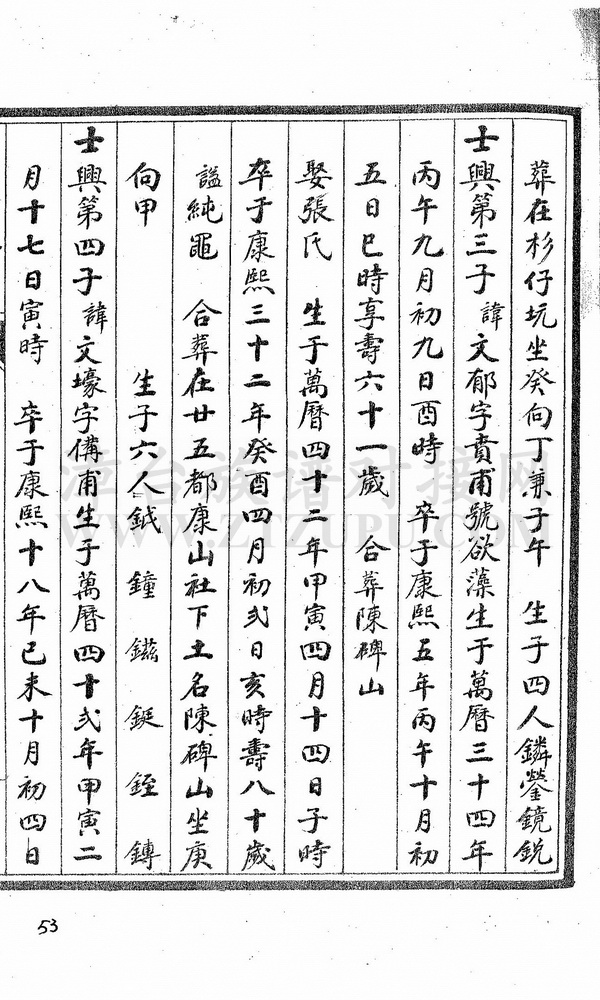 葬在杉仔坑坐癸向丁兼子午 生子四人鏻蓥鏡銳
士興第三子諱文郁字賁甫號欲藻生于萬曆三十四年
丙午九月初九日酉時 卒于康熙五年丙午十月初
五日巳時享壽六十一歲 合葬陳碑山
娶張氏 生于萬曆四十二年甲寅四月十四日子時
卒于康熙三十二年癸酉四月初弍日亥時壽八十歲
謚純黽 合葬在廿五都康山社下土名陳碑山坐庚
向甲 生子六人鉞 鐘 鎡 鋌 銍 鏄
士興第四子諱文壕字備甫生于萬曆四十弍年甲寅二
月十七日寅時 卒于康熙十八年己未十月初四日
53
漳台族谱对接网
WWW.ZTZUPU.COM